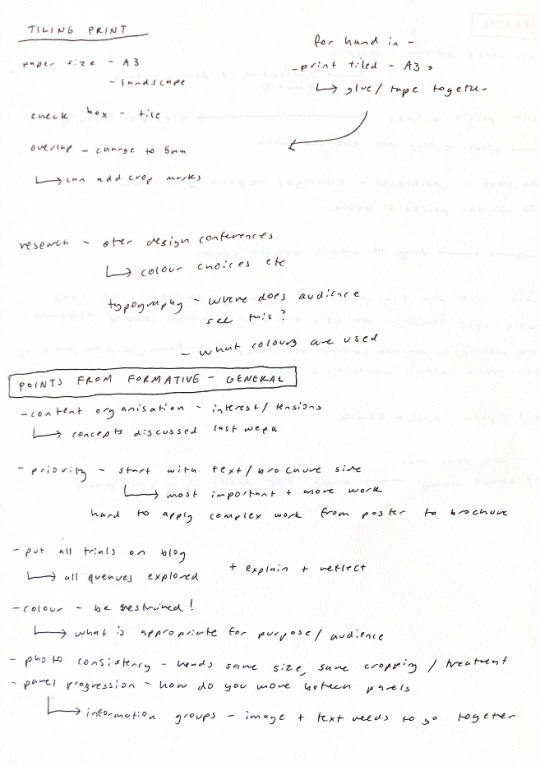 TILING PRINT
paper size - A3
- landscape
check box - tile
overlap - change to 5mm
↳ can add crop marks
for hand in -
- print tiled - A3s
↳ glue/tape together
research - other design conferences
↳ colour choices etc
typography - where does audience
see this?
- what colours are used
POINTS FROM FORMATIVE - GENERAL
- content organisation - interest/tensions
↳ concepts discussed last week
- priority - start with text/brochure side
↳ most important + more work
hard to apply complex work from poster to brochure
- put all trials on blog
↳ all avenues explored + explain + reflect
- colour - be restrained!
↳ what is appropriate for purpose/audience
- photo consistency - heads same size, same cropping / treatment
- panel progression - how do you move between panels
↳ information groups - image + text needs to go together